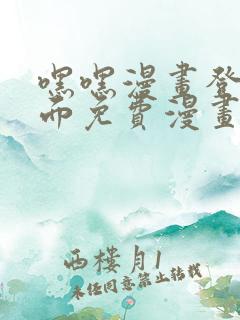 嘿嘿漫畫登
而免費漫畫
西樓月1
未经同意禁止转载